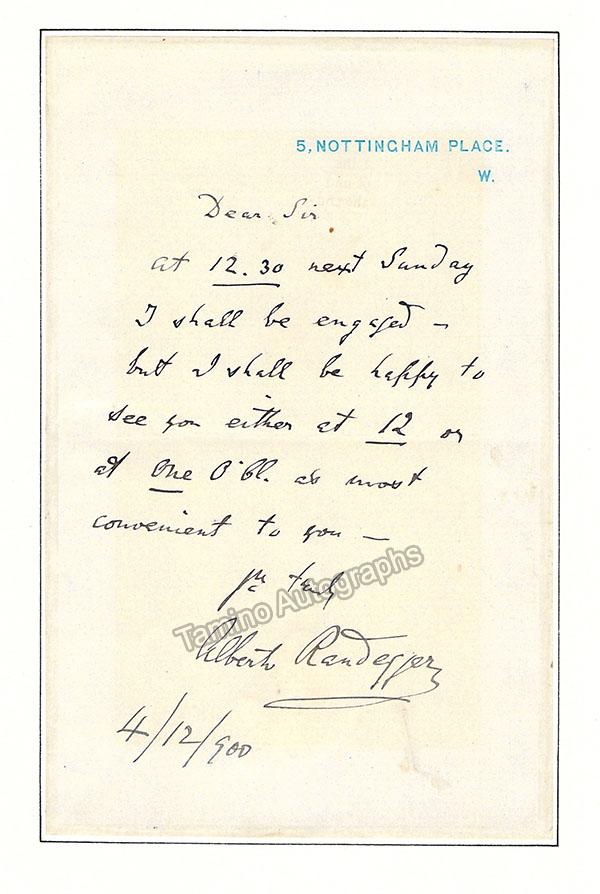 5, NOTTINGHAM PLACE.
W.
Dear Sir
at 12.30 next Sunday
I shall be engaged –
but I shall be happy to
see you either at 12 or
at One O'Cl. as most
convenient to you –
yrs truly
Tamino Autographs
Alberto Randegger
4/12/900